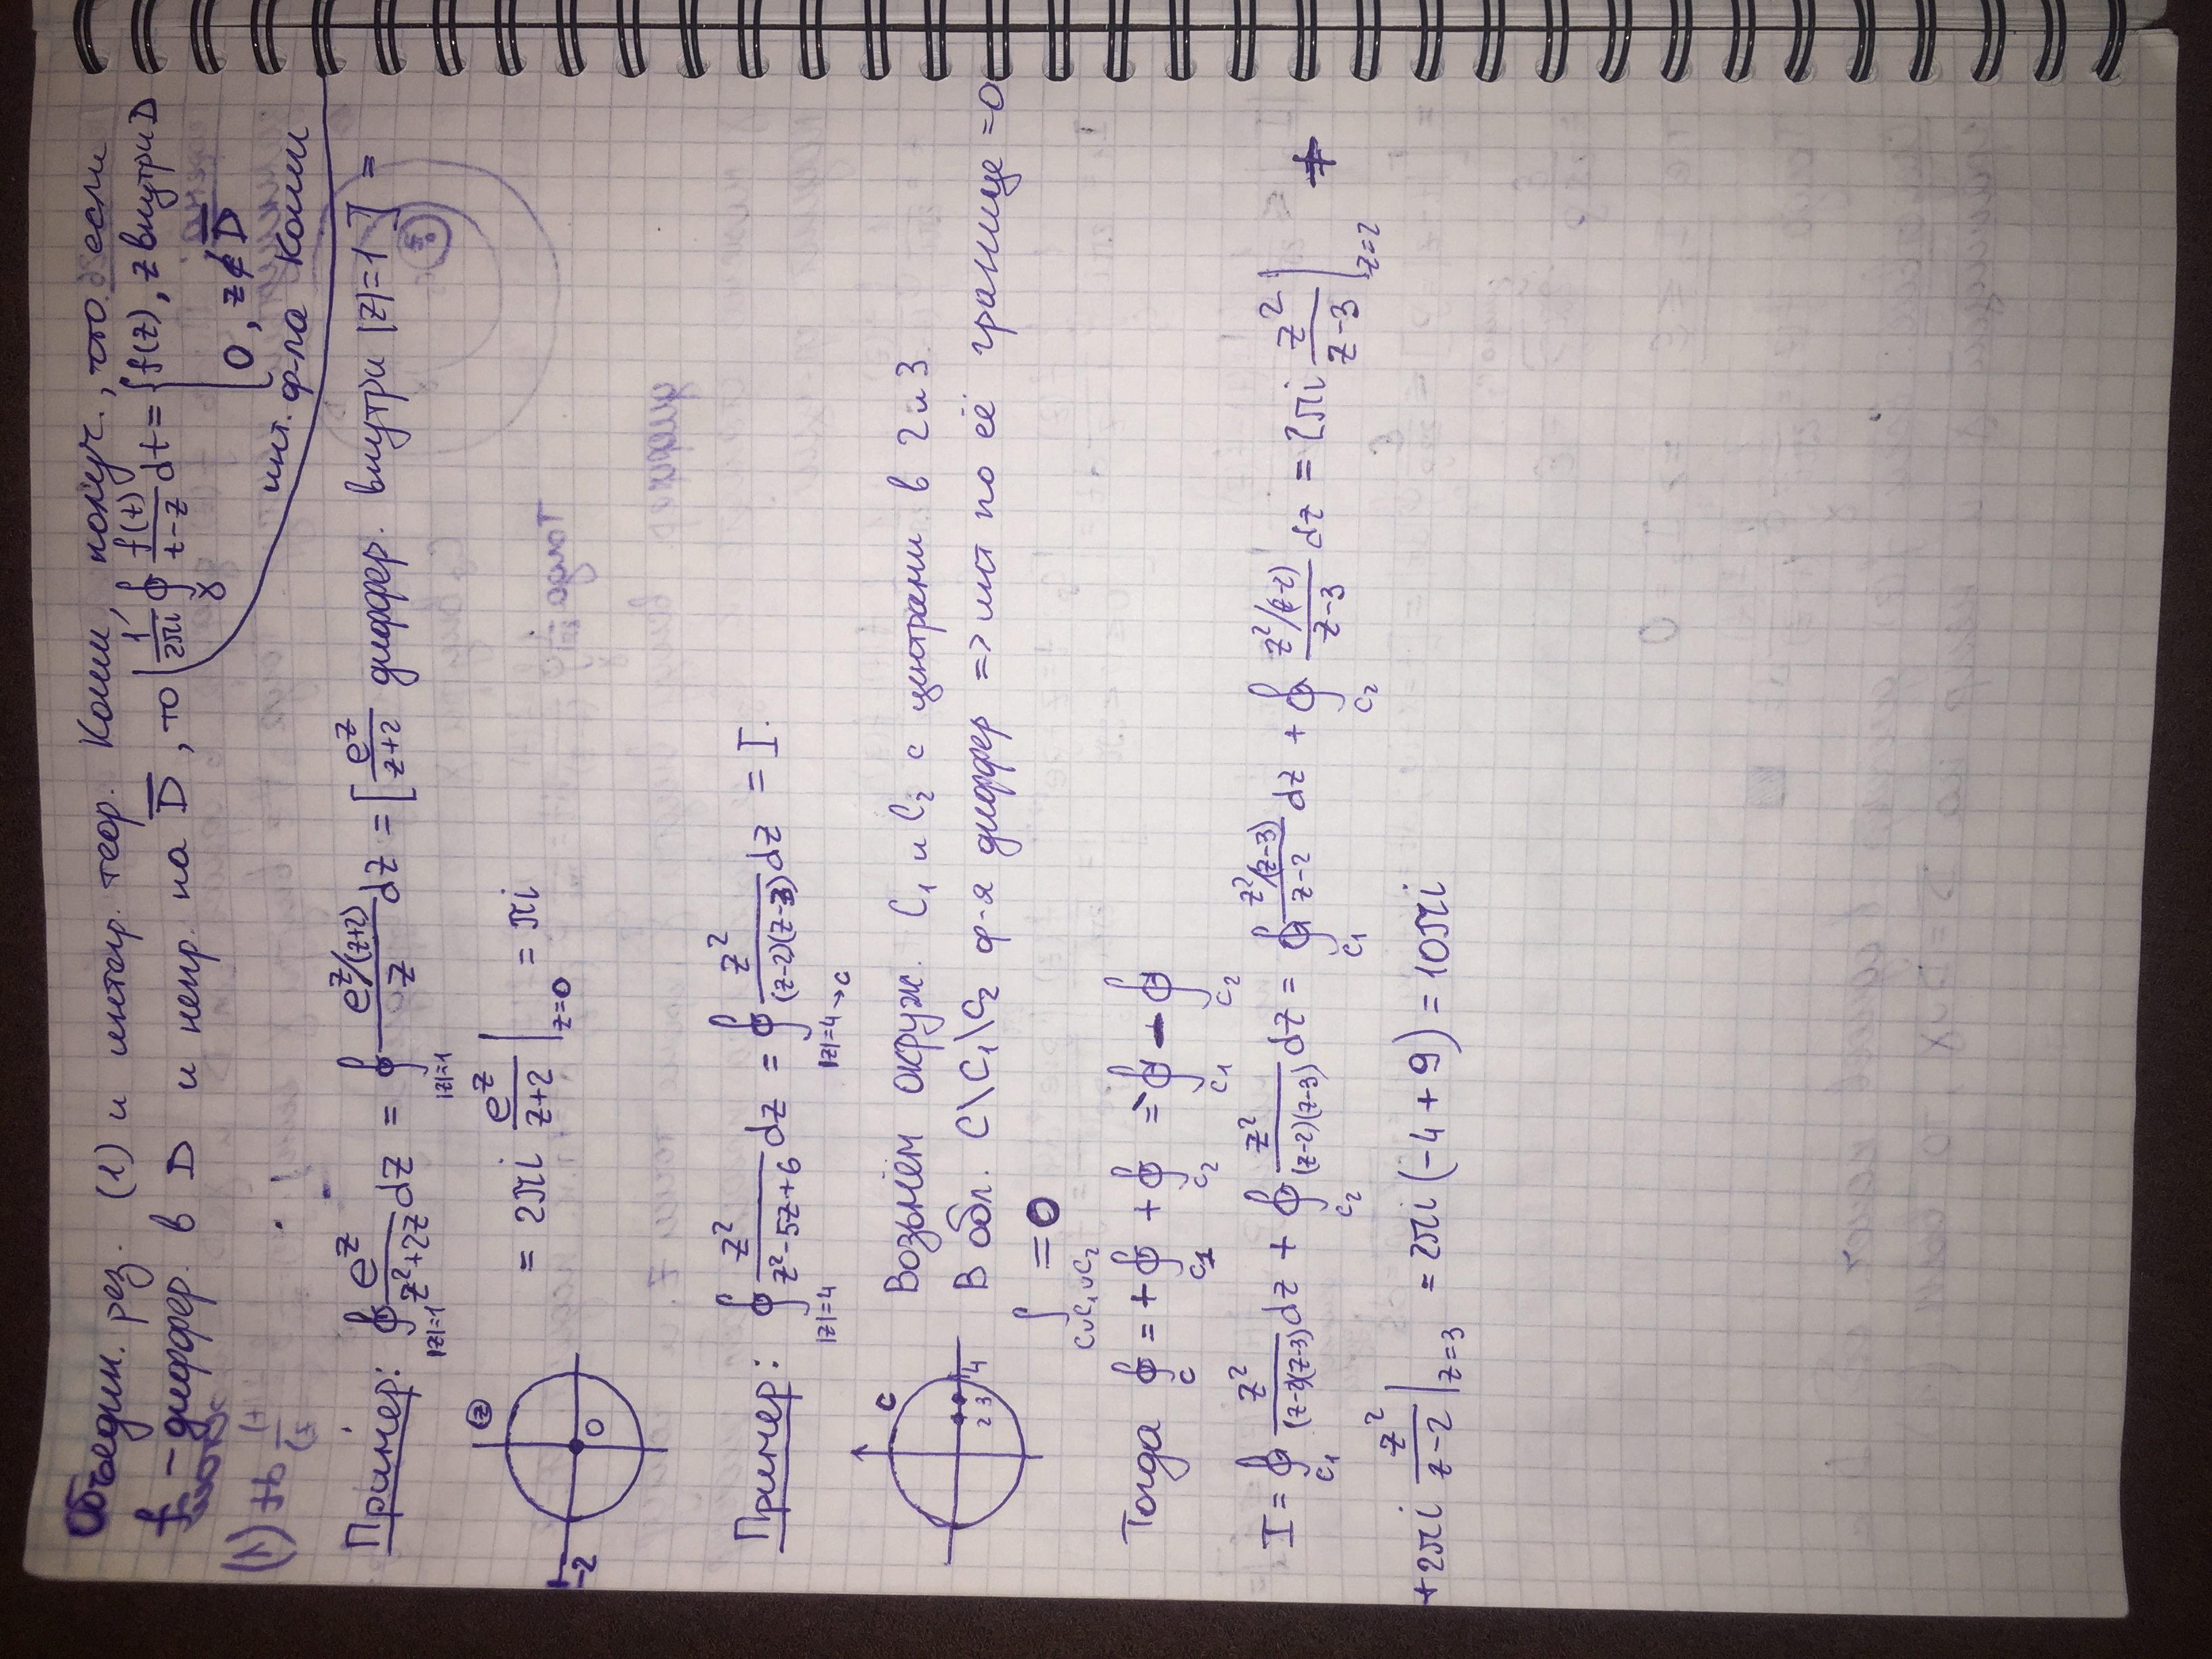 Объедин. рез. (1) и интегр. теор. Коши, получ., что если
f – диффер. в D и непр. на D̅, то 1/2πi ∮_γ f(t)/(t-z) dt = { f(z), z внутри D
0, z∉D̅
инт. ф-ла Коши
Пример: ∮_{|z|=1} e^z/(z²+2z) dz = ∮_{|z|=1} (e^z/(z+2))/z dz = [e^z/(z+2) диффер. внутри |z|=1] =
z
-2 0
= 2πi e^z/(z+2) |_{z=0} = πi
Пример: ∮_{|z|=4} z²/(z²-5z+6) dz = ∮_{|z|=4→c} z²/((z-2)(z-3)) dz = I.
c
2 3 4
Возьмём окруж. C₁ и C₂ с центрами в 2 и 3.
В обл. C\C₁\C₂ ф-я диффер => инт по её границе =0
∫_{C∪C₁∪C₂} = 0
Тогда ∮_c = +∮_{c₁} + ∮_{c₂} = -∮_{c₁} - ∮_{c₂}
I = ∮_{c₁} z²/((z-2)(z-3)) dz + ∮_{c₂} z²/((z-2)(z-3)) dz = ∮_{c₁} (z²/(z-3))/(z-2) dz + ∮_{c₂} (z²/(z-2))/(z-3) dz = 2πi z²/(z-3) |_{z=2} +
+2πi z²/(z-2) |_{z=3} = 2πi (-4+9) = 10πi